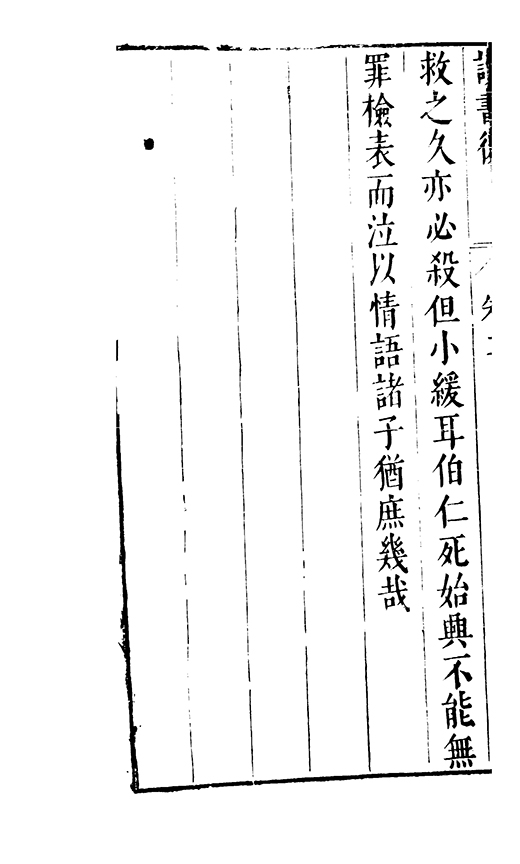 救之久亦必殺但小緩耳伯仁死始興不能無
罪檢表而泣以情語諸子猶庶幾哉